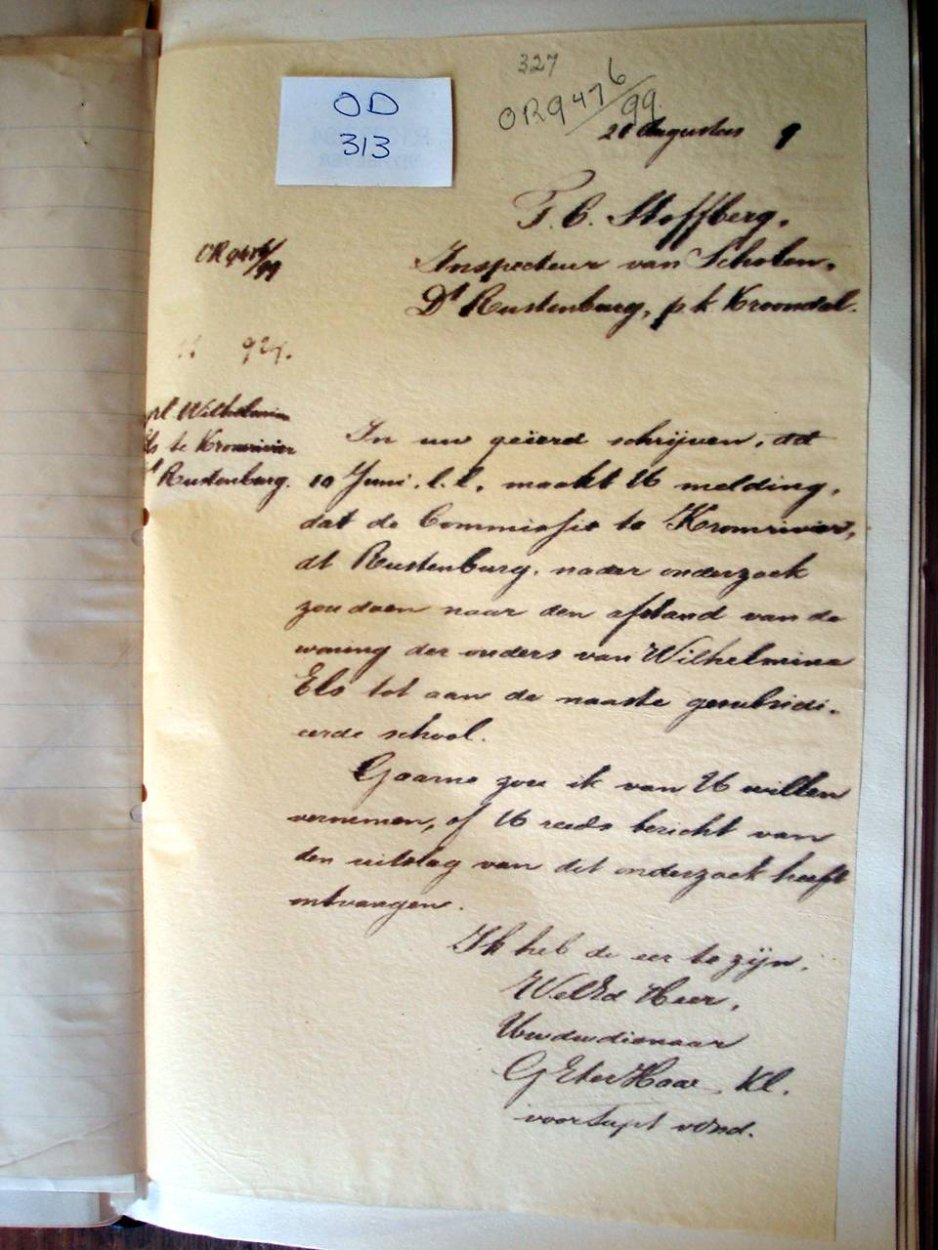 327
OR 9476/99
OD
313
Augustus 9
T. C. Stoffberg.
Inspecteur van Scholen.
Dt Rustenburg, p.k. Kroondal.
OR 9476/99
924.
Wilhelmina
Els te Kromrivier
Rustenburg.
In uw geëerd schrijven, dd
10 Juni. l.l. maakt U melding,
dat de Commissie te Kromrivier,
dt Rustenburg, nader onderzoek
zou doen naar den afstand van de
woning der ouders van Wilhelmina
Els tot aan de naaste gesubsidi-
eerde school.
Gaarne zou ik van U willen
vernemen, of U reeds bericht van
den uitslag van dit onderzoek heeft
ontvangen.
Ik heb de eer te zijn,
WelEd Heer,
Uw dw dienaar
G E ter Haar, Kl.
voor Supt v Ond.